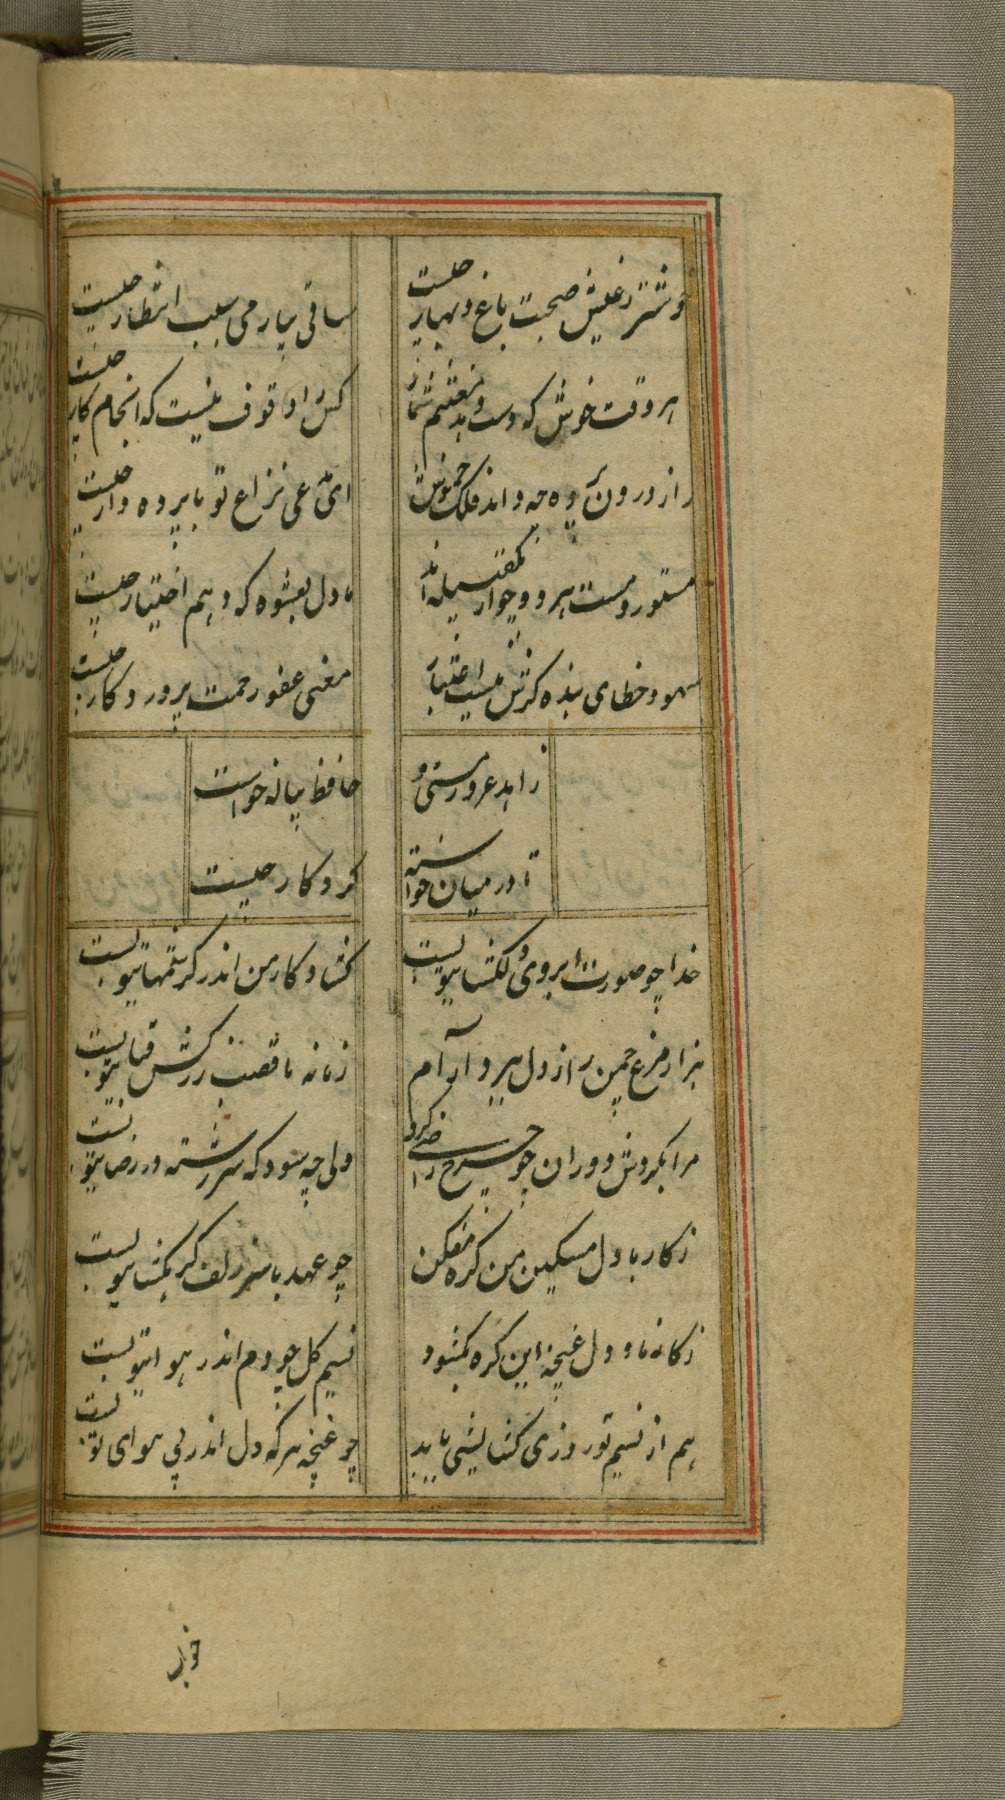 خوشتر ز عیش صحبت باغ و بهار چیست ساقی بیار می سبب انتظار چیست
هر وقت خوش که دست دهد مغتنم شمار کس را وقوف نیست که انجام کار چیست
راز درون پرده چه داند فلک خموش ای مدعی نزاع تو با پرده دار چیست
مستور و مست هر دو چو از یک قبیله اند ما دل بعشوه که دهیم اختیار چیست
سهو و خطای بنده گرش نیست اعتبار معنی عفو رحمت پروردگار چیست
زاهد غرور مستی و حافظ پیاله خواست
تا در میان خواسته کردگار چیست
خدا چو صورت ابروی دلگشای تو بست گشاد کار من اندر کرشمهای تو بست
هزار مرغ چمن را ز دل ببرد آرام زمانه تا قصب زرکش قبای تو بست
مرا بگردش دوران چو چرخ راضی کرد ولی چه سود که سر رشته در رضای تو بست
ز کار ما دل مسکین من گره مفکن چو عهد با سر زلف گره گشای تو بست
ز کار ما و دل غنچه این گره بگشود نسیم گل چو دم اندر هوای تو بست
هم از نسیم تو روزی گشایشی یابد چو غنچه هر که دل اندر پی هوای تو بست